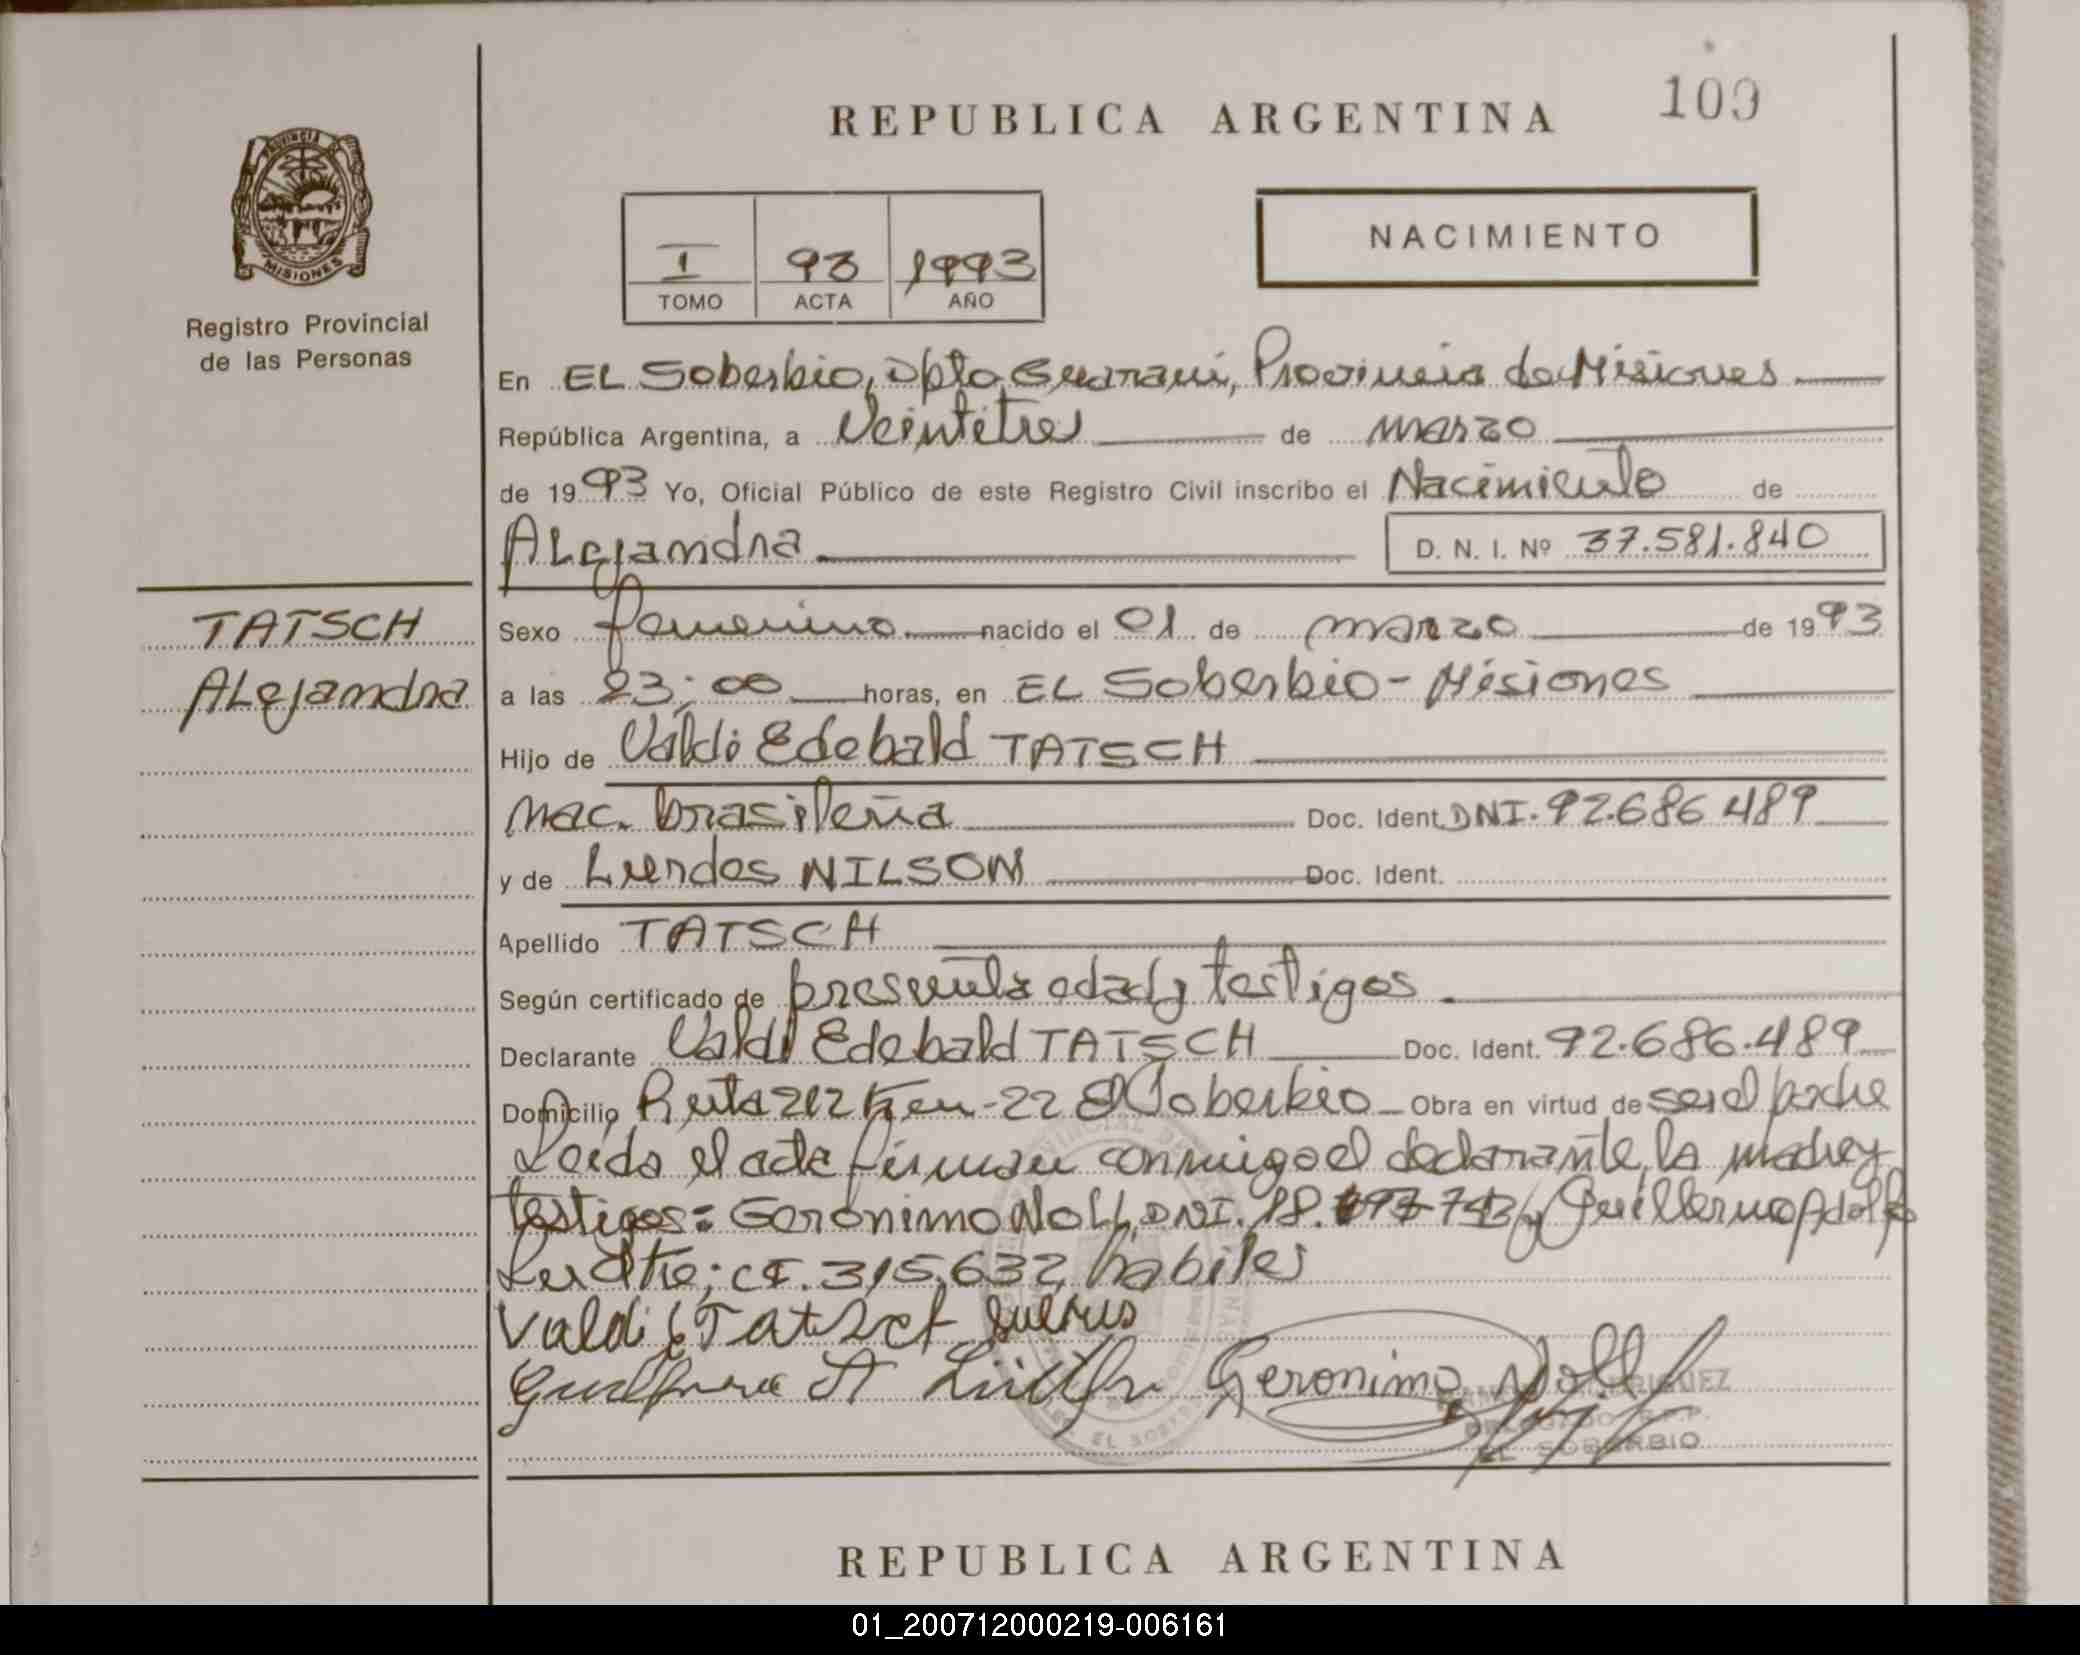 REPUBLICA ARGENTINA 109
PROVINCIA DE
MISIONES
Registro Provincial
de las Personas
I 93 1993
TOMO ACTA AÑO
NACIMIENTO
En EL Soberbio, Dpto Guaraní, Provincia de Misiones
República Argentina, a Veintitres de marzo
de 1993 Yo, Oficial Público de este Registro Civil inscribo el Nacimiento de
Alejandra D. N. I. Nº 37.581.840
TATSCH
Alejandra
Sexo femenino nacido el 01 de marzo de 1993
a las 23:00 horas, en EL Soberbio - Misiones
Hijo de Valdi Edebald TATSCH
nac. brasileña Doc. Ident. DNI. 92.686 489
y de Lurdes NILSON Doc. Ident.
Apellido TATSCH
Según certificado de presunta edad y testigos
Declarante Valdi Edebald TATSCH Doc. Ident. 92.686.489
Domicilio Ruta 212 Km-22 El Soberbio Obra en virtud de ser el padre
Leida el acta firman conmigo el declarante, la madre y
testigos: Geronimo Noll, DNI. 18. y Guillermo Adolfo
CI. 315.632, habiles
Valdi E Tatsch
Geronimo Noll
RODRIGUEZ
DELEGADO R.P.P.
EL SOBERBIO
REPUBLICA ARGENTINA
01_200712000219-006161